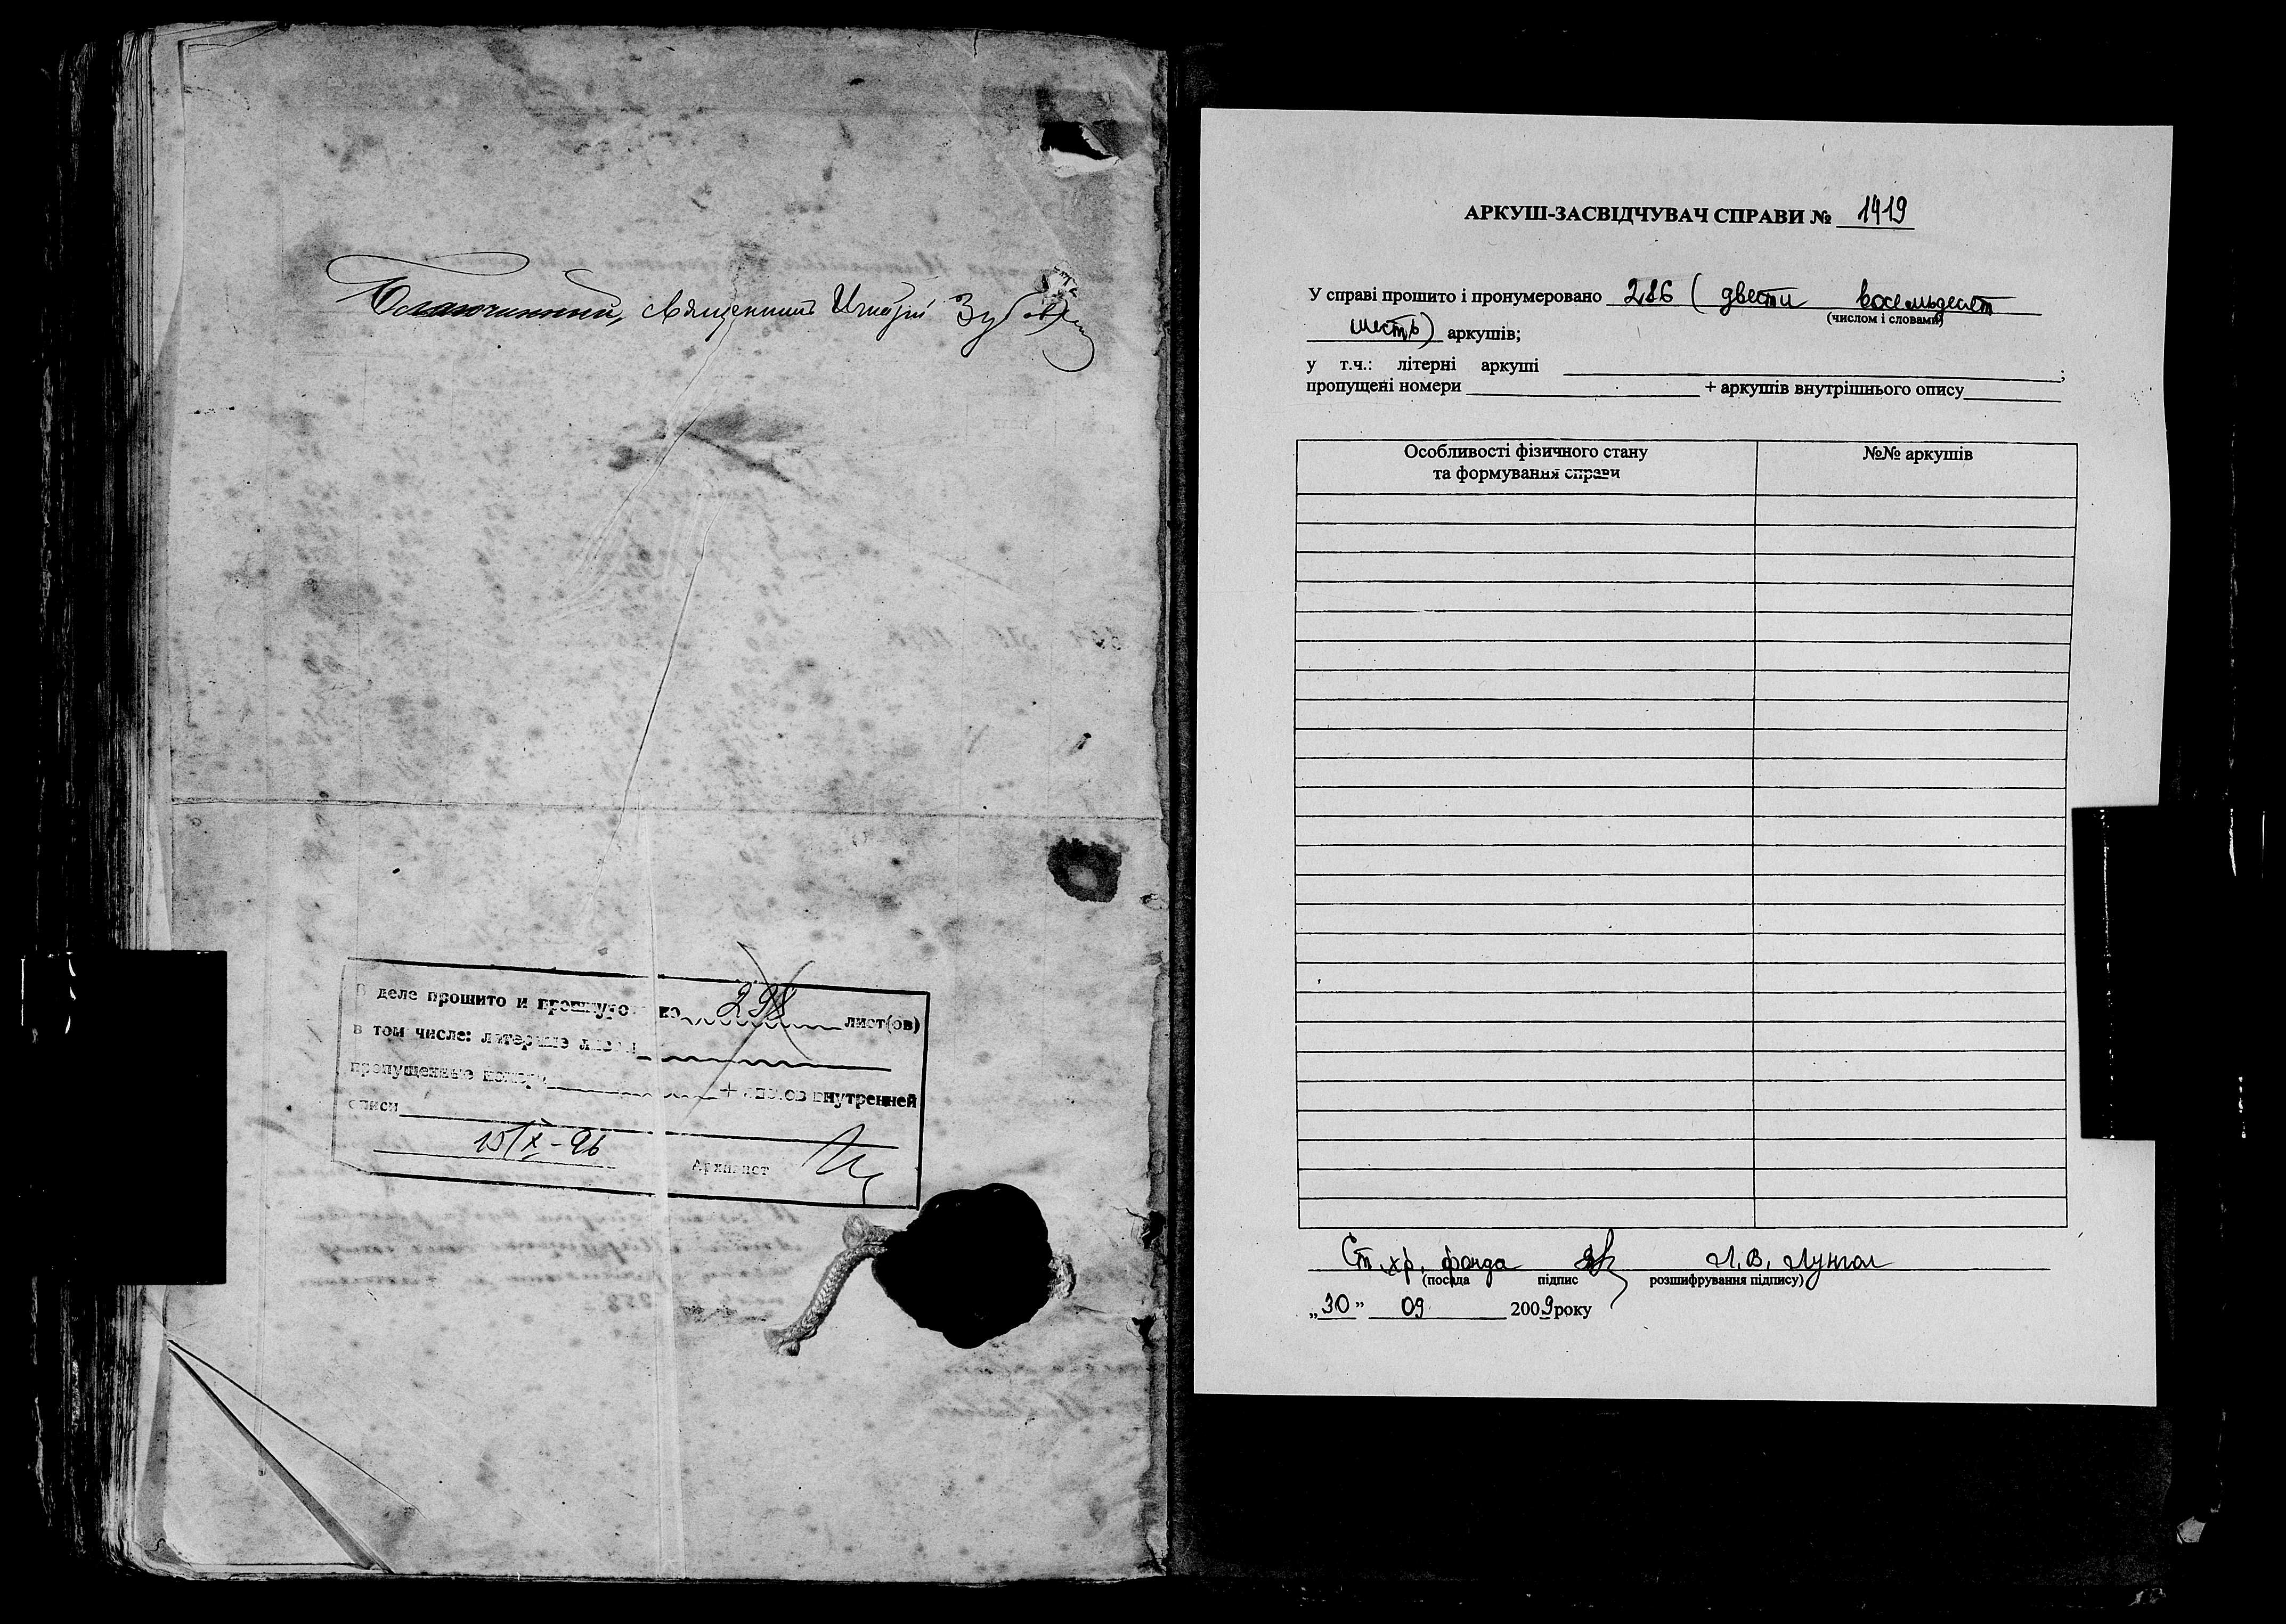 Благочинный, священникъ Игнатій Зубо
В деле прошито и пронумеро но 298 лист(ов)
в том числе: литерные листы
пропущенные номера + листов внутренней
описи
15/X-96 Архивист
АРКУШ-ЗАСВІДЧУВАЧ СПРАВИ № 1419
У справі прошито і пронумеровано 286 ( двести восемьдесят
(числом і словами)
шесть) аркушів;
у т.ч.: літерні аркуші ;
пропущені номери + аркушів внутрішнього опису
Особливості фізичного стану
та формування справи
№№ аркушів
Ст. хр. фонда Л.В. Лунгол
(посада підпис розшифрування підпису)
„30” 09 2009року